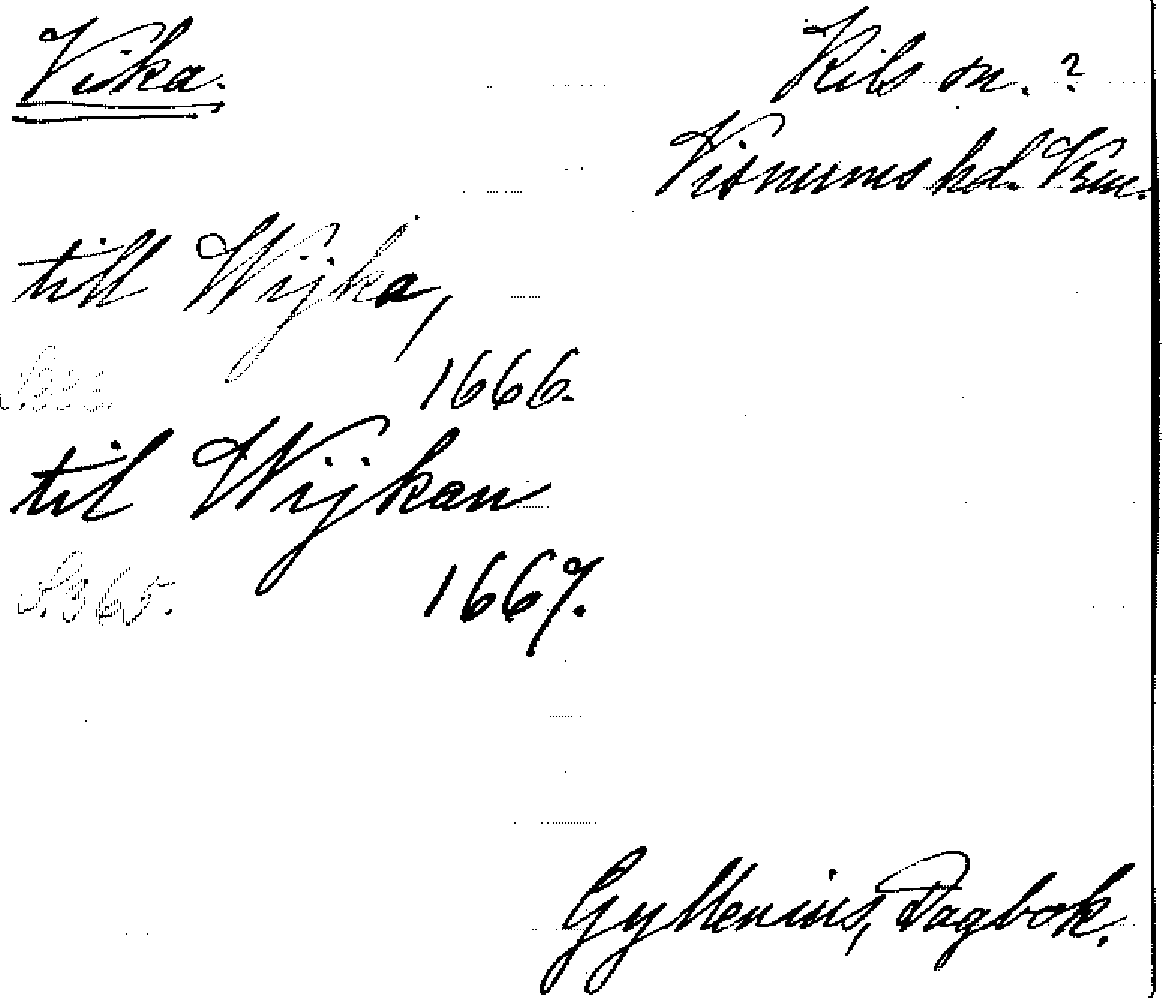 Vika.
Kils sn. ?
Visnums hd. Vrm.
till Wijka,
1666.
til Wijkan
1667.
Gyllenius, Dagbok.